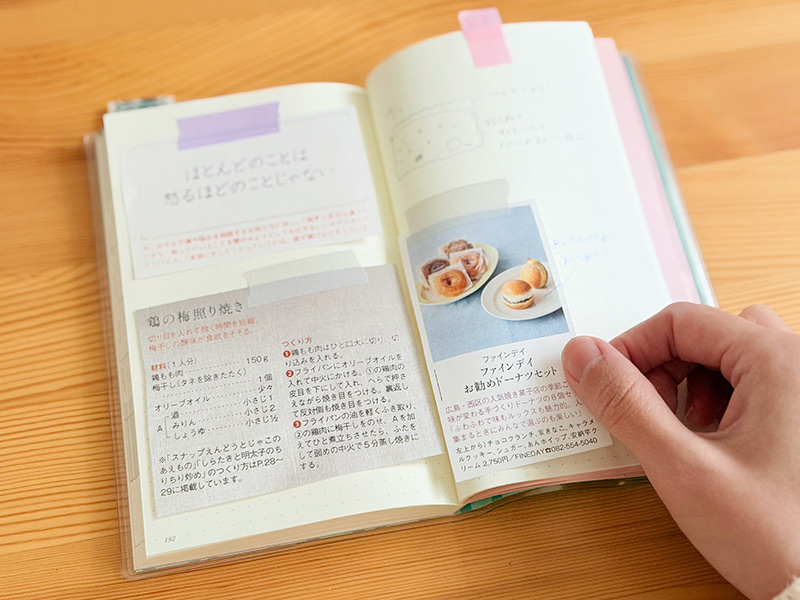 ほとんどのことは
怒るほどのことじゃない
鶏の梅照り焼き
切り目を入れて焼く時間を短縮。
梅干しの酸味が食欲をそそる。
材料(1人分)
鶏もも肉 150g
梅干し(タネを除きたたく)
1個
オリーブオイル 少々
A
酒 小さじ1
みりん 小さじ2
しょうゆ 小さじ½
※「スナップえんどうとじゃこの
あえもの」「しらたきと明太子のち
りちり炒め」のつくり方はP.28〜
29に掲載しています。
つくり方
❶鶏もも肉はひと口大に切り、切
り込みを入れる。
❷フライパンにオリーブオイルを
入れて中火にかける。①の鶏肉の
皮目を下にして入れ、へらで押さ
えながら焼き目をつける。裏返し
て反対側も焼き目をつける。
❸フライパンの油を軽くふき取り、
②の鶏肉に梅干しをのせ、Aを加
えてひと煮立ちさせたら、ふたを
して弱めの中火で5分蒸し焼きに
する。
192
ファインデイ
ファインデイ
お勧めドーナツセット
広島・西区の人気焼き菓子店の季節ご
味が変わる手づくりドーナツの6個セ
「ふわふわで味もルックスも魅力的。人
集まるときにみんなで選ぶのも楽しい」
左上からチョコクランチ、京きなこ、キャラメ
ルクッキー、シュガー、あんホイップ、安納芋ク
リーム 2,750円/FINEDAY☎082-554-5040